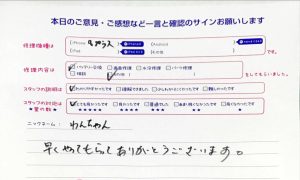 本日のご意見・ご感想など一言と確認のサインお願いします
修理機種は
iPhone 8プラス
Android
iPad
その他
修理内容は
バッテリー交換 画面修理 水没修理 パーツ修理
相談 その他
をしてもらいました。
スタッフの説明は
わかりやすかったです 理解できました 少しわかりにくかったです 難しかったです
スタッフの対応は
★星の数★
とても良かったです 良かったです 普通でした あまり良くなかったです 良くなかったです
ニックネーム: わんちゃん
早くやってもらってありがとうございます。